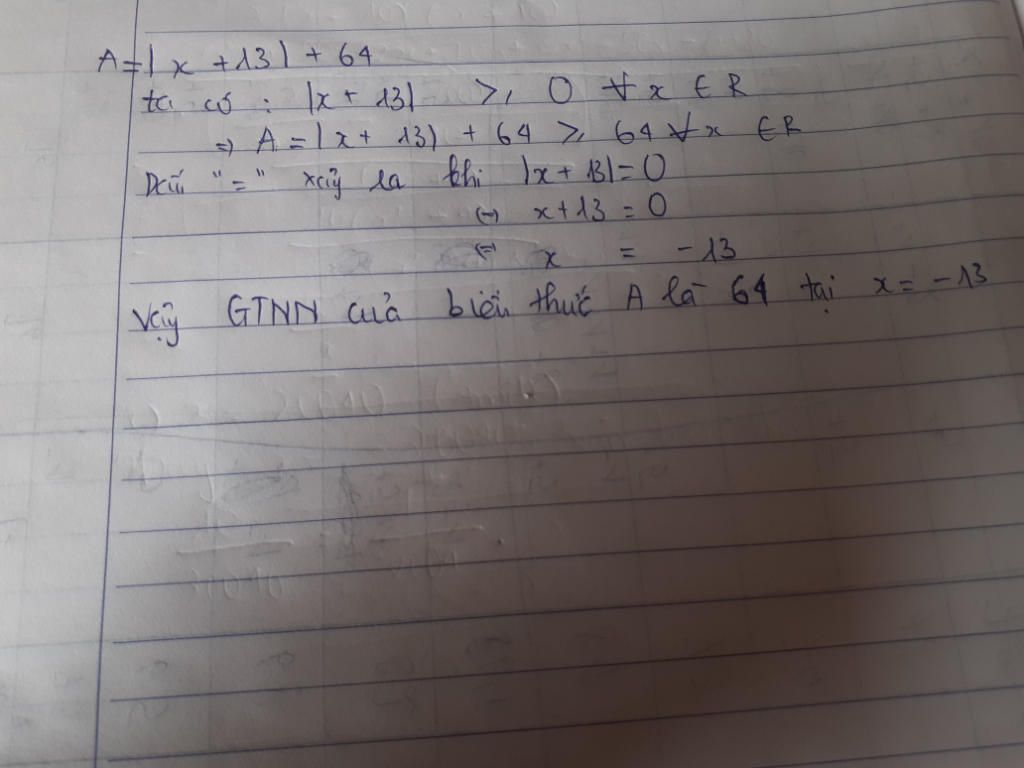 A = | x + 13 | + 64
ta có : |x + 13| ≥ 0 ∀ x ∈ R
⇒ A = |x + 13| + 64 ≥ 64 ∀ x ∈ R
Dấu "=" xảy ra khi |x + 13| = 0
⇔ x + 13 = 0
⇔ x = - 13
Vậy GTNN của biểu thức A là 64 tại x = - 13